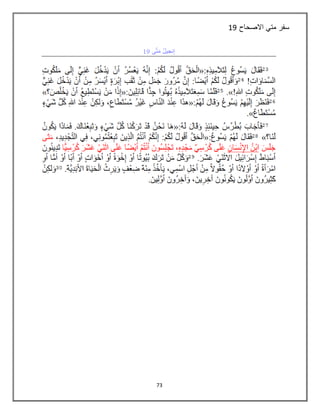 سفر متي الاصحاح 19
إِنْجِيلُ مَتَّى 19
²³فَقَالَ يَسُوعُ لِتَلاَمِيذِهِ:«الْحَقَّ أَقُولُ لَكُمْ: إِنَّهُ يَعْسُرُ أَنْ يَدْخُلَ غَنِيٌّ إِلَى مَلَكُوتِ
السَّمَاوَاتِ! ²⁴وَأَقُولُ لَكُمْ أَيْضًا: إِنَّ مُرُورَ جَمَل مِنْ ثَقْبِ إِبْرَةٍ أَيْسَرُ مِنْ أَنْ يَدْخُلَ غَنِيٌّ
إِلَى مَلَكُوتِ اللهِ!». ²⁵فَلَمَّا سَمِعَ تَلاَمِيذُهُ بُهِتُوا جِدًّا قَائِلِينَ:«إِذًا مَنْ يَسْتَطِيعُ أَنْ يَخْلُصَ؟»
²⁶فَنَظَرَ إِلَيْهِمْ يَسُوعُ وَقَالَ لَهُمْ:«هذَا عِنْدَ النَّاسِ غَيْرُ مُسْتَطَاعٍ، وَلكِنْ عِنْدَ اللهِ كُلُّ شَيْءٍ
مُسْتَطَاعٌ».
²⁷فَأَجَابَ بُطْرُسُ حِينَئِذٍ وَقَالَ لَهُ:«هَا نَحْنُ قَدْ تَرَكْنَا كُلَّ شَيْءٍ وَتَبِعْنَاكَ. فَمَاذَا يَكُونُ
لَنَا؟» ²⁸فَقَالَ لَهُمْ يَسُوعُ:«الْحَقَّ أَقُولُ لَكُمْ: إِنَّكُمْ أَنْتُمُ الَّذِينَ تَبِعْتُمُونِي، فِي التَّجْدِيدِ، مَتَى
جَلَسَ ابْنُ الإِنْسَانِ عَلَى كُرْسِيِّ مَجْدِهِ، تَجْلِسُونَ أَنْتُمْ أَيْضًا عَلَى اثْنَيْ عَشَرَ كُرْسِيًّا تَدِينُونَ
أَسْبَاطَ إِسْرَائِيلَ الاثْنَيْ عَشَرَ. ²⁹وَكُلُّ مَنْ تَرَكَ بُيُوتًا أَوْ إِخْوَةً أَوْ أَخَوَاتٍ أَوْ أَبًا أَوْ أُمًّا أَوِ
امْرَأَةً أَوْ أَوْلاَدًا أَوْ حُقُولاً مِنْ أَجْلِ اسْمِي، يَأْخُذُ مِئَةَ ضِعْفٍ وَيَرِثُ الْحَيَاةَ الأَبَدِيَّةَ. ³⁰وَلكِنْ
كَثِيرُونَ أَوَّلُونَ يَكُونُونَ آخِرِينَ، وَآخِرُونَ أَوَّلِينَ.
73